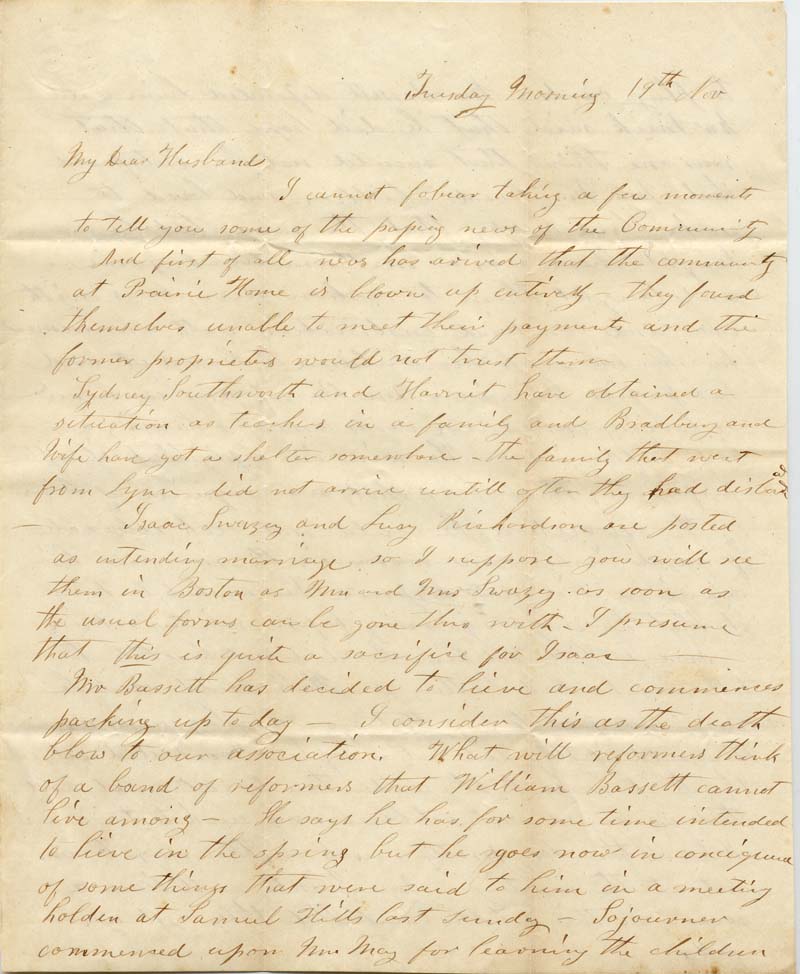 Tuesday Morning 19th Nov
My Dear Husband
I cannot fobear taking a few moments
to tell you some of the passing news of the Community
And first of all news has arived that the community
at Prairie Home is blown up entirely - they found
themselves unable to meet their payments and the
former proprieters would not trust them
Sydney Southworth and Harriet have obtained a
situation as teachers in a family and Bradbury and
Wife have got a shelter somewhere - the family that went
from Lynn did not arrive untill after they had disban ed
— Isaac Swazey and Lucy Richardson are posted
as intending marriage so I suppose you will see
them in Boston as Mr and Mrs Swazey as soon as
the usual forms can be gone thro with - I presume
that this is quite a sacrifice for Isaac —
Mr Bassett has decided to lieve and commences
packing up today — I consider this as the death
blow to our association. What will reformers think
of a band of reformers that William Bassett cannot
live among — He says he has for some time intended
to lieve in the spring but he goes now in consequence
of some things that were said to him in a meeting
holden at Samuel Hills last sunday — Sojourner
commensed upon Mrs May for learning the children